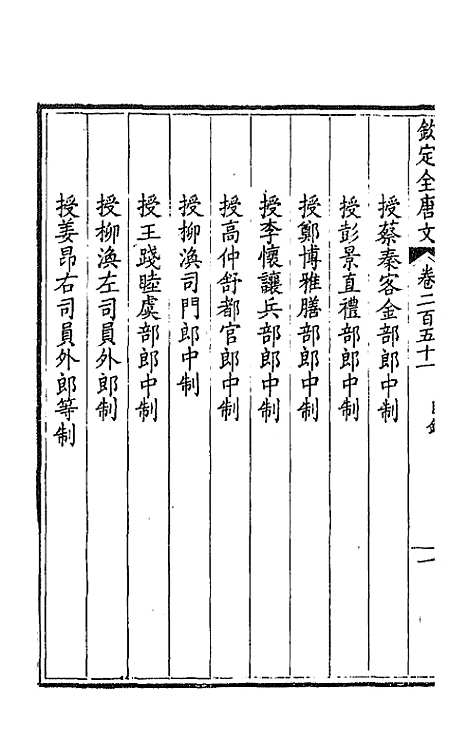 欽定全唐文 卷二百五十一 目錄 二
授蔡秦客金部郎中制
授彭景直禮部郎中制
授鄭博雅膳部郎中制
授李懷讓兵部郎中制
授高仲舒都官郎中制
授柳渙司門郎中制
授王踐睦虞部郎中制
授柳渙左司員外郎制
授姜昂右司員外郎等制